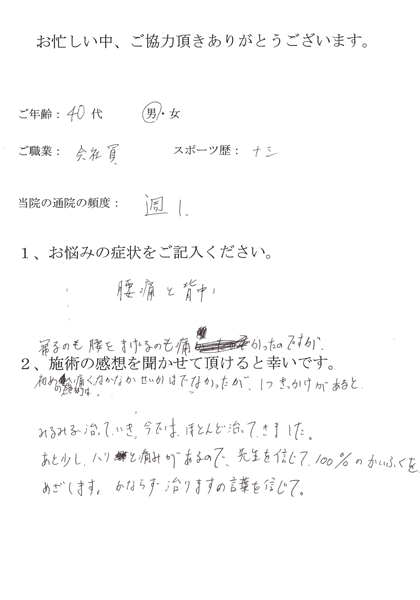 お忙しい中、ご協力頂きありがとうございます。
ご年齢：40代 男・女
ご職業：会社員 スポーツ歴：ナシ
当院の通院の頻度：週1.
１、お悩みの症状をご記入ください。
腰痛と背中
寝るのも腰をまげるのも痛かったのですが、
２、施術の感想を聞かせて頂けると幸いです。
初めの 痛くなかなかせいかはでなかったが、1つきっかけがあると、
みるみる治っていき、今では、ほとんど治ってきました。
あと少し、ハリと痛みがあるので、先生を信じて、100%のかいふくを
めざします。かならず治りますの言葉を信じて。